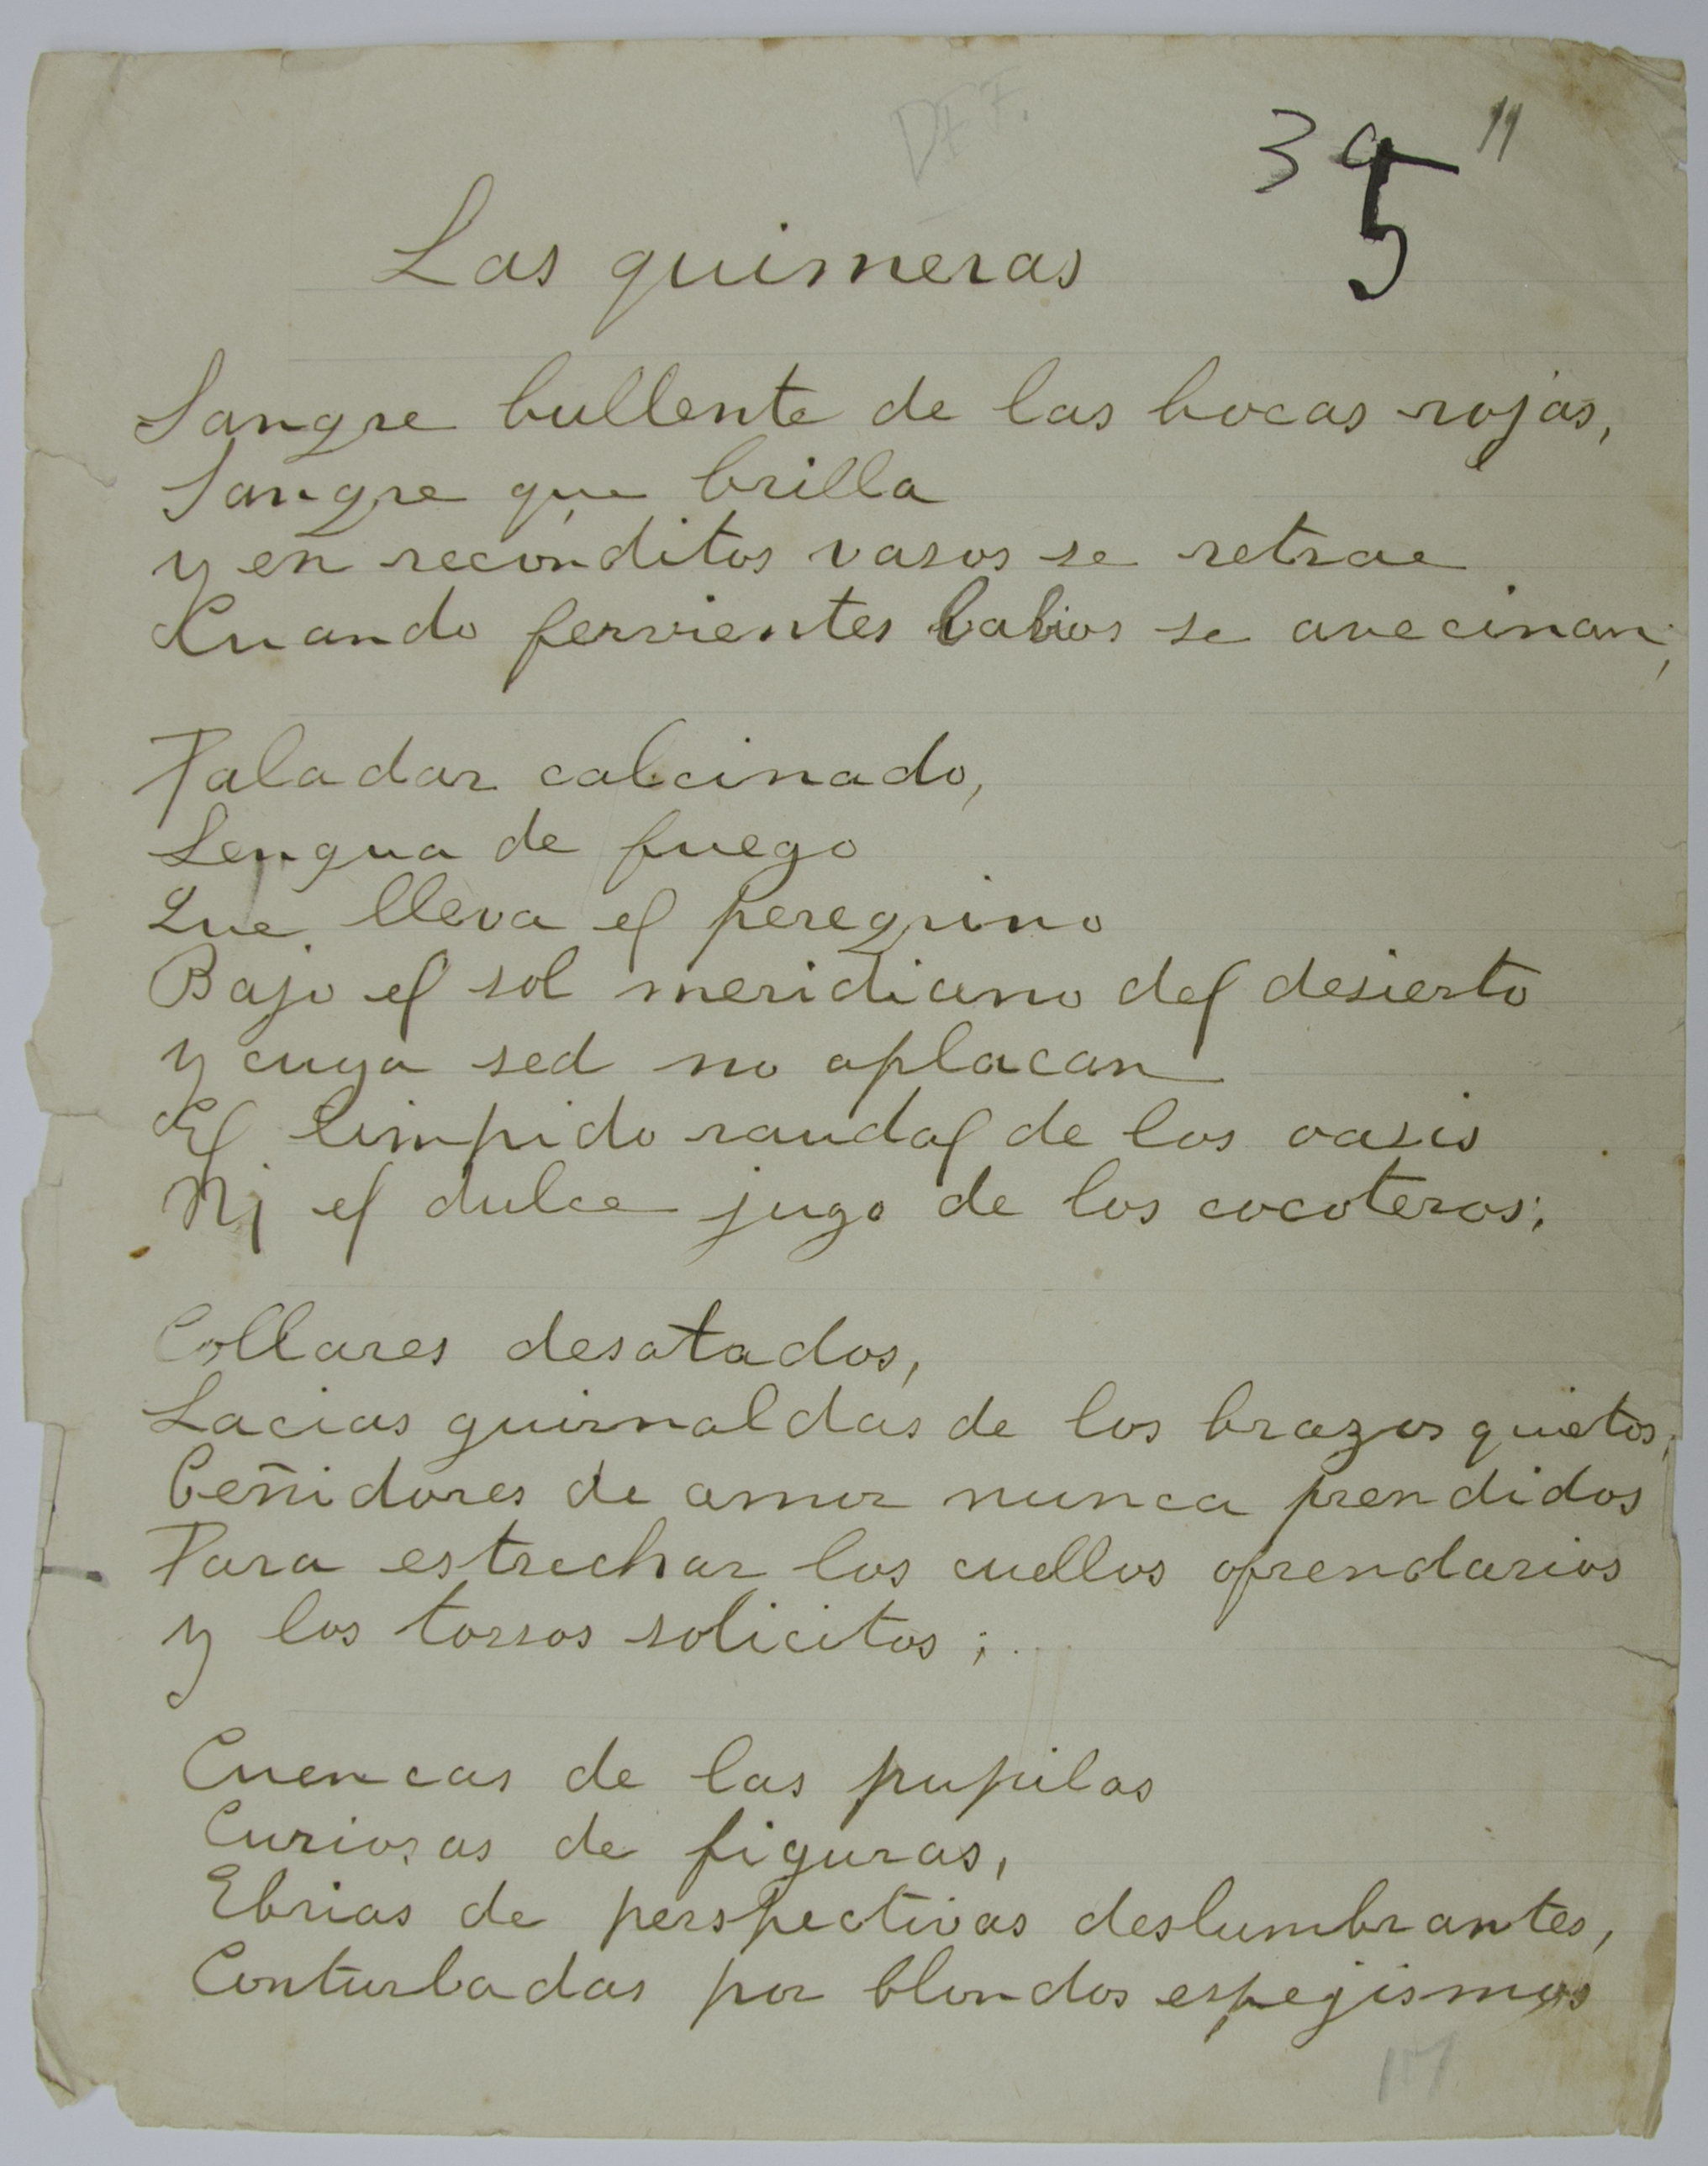 DEF.
39 11
5
Las quimeras
Sangre bullente de las bocas rojas,
Sangre que brilla
y en recónditos vasos se retrae
Cuando fervientes labios se avecinan;
Paladar calcinado,
Lengua de fuego
Que lleva el peregrino
Bajo el sol meridiano del desierto
y cuya sed no aplacan
El limpido raudal de los oasis
Ni el dulce jugo de los cocoteros;
Collares desatados,
Lacias guirnaldas de los brazos quietos,
Ceñidores de amor nunca prendidos
Para estrechar los cuellos ofrendarios
y los torsos solicitos;
Cuencas de las pupilas
Curiosas de figuras,
Ebrias de perspectivas deslumbrantes,
Conturbadas por blondos espejismos